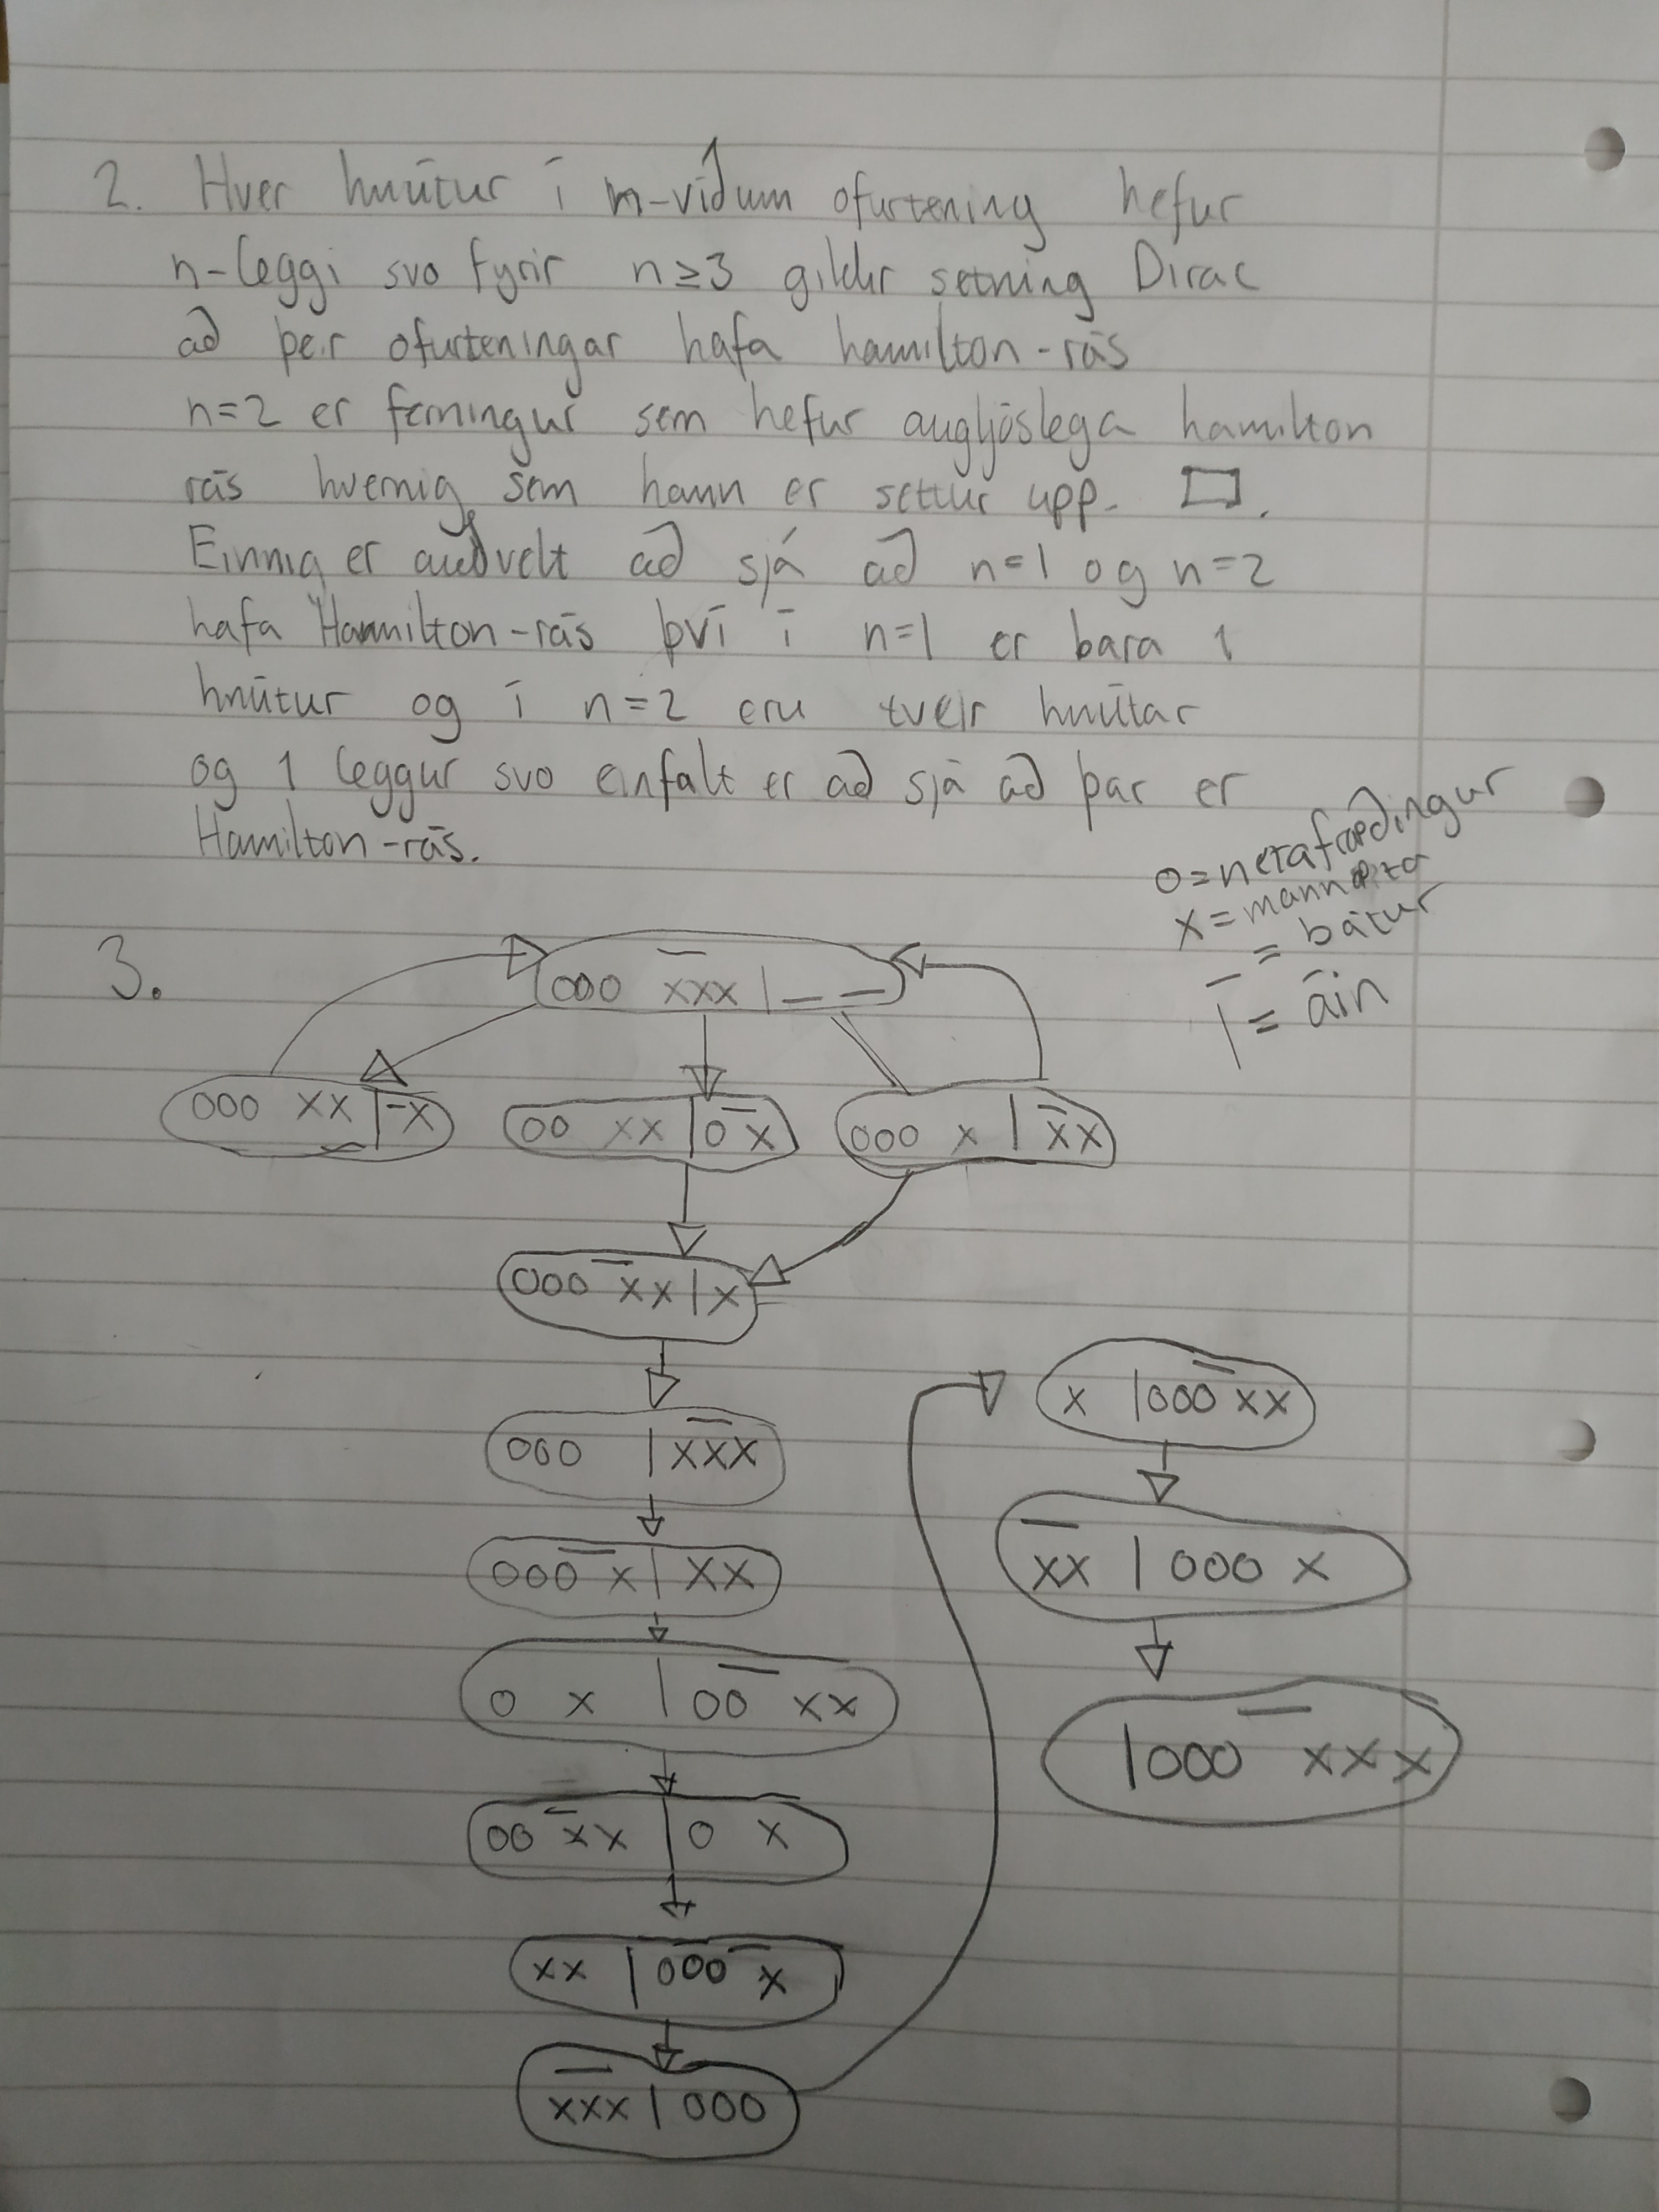 2. Hver hnútur í n-víðum ofurtening hefur
n-leggi svo fyrir n≥3 gildir setning Dirac
að þeir ofurteningar hafa hamilton-rás
n=2 er ferningur sem hefur augljóslega hamilton
rás hvernig sem hann er settur upp. □.
Einnig er auðvelt að sjá að n=1 og n=2
hafa Hamilton-rás því í n=1 er bara 1
hnútur og í n=2 eru tveir hnútar
og 1 leggur svo einfalt er að sjá að þar er
Hamilton-rás.
o=netafræðingur
x=mannæta
‾ = bátur
| = áin
3.
000 x̅xx | _ _
000 xx |‾x
00 xx |0 ‾ x
000 x | ‾xx
000 ‾ xx | x
000 | x‾xx
000 ‾ x | xx
0 x | 00 ‾ xx
00 ‾ xx | 0 x
xx | 000 ‾ x
‾xxx | 000
x | 000 ‾ xx
‾xx | 000 x
| 000 ‾ xxx